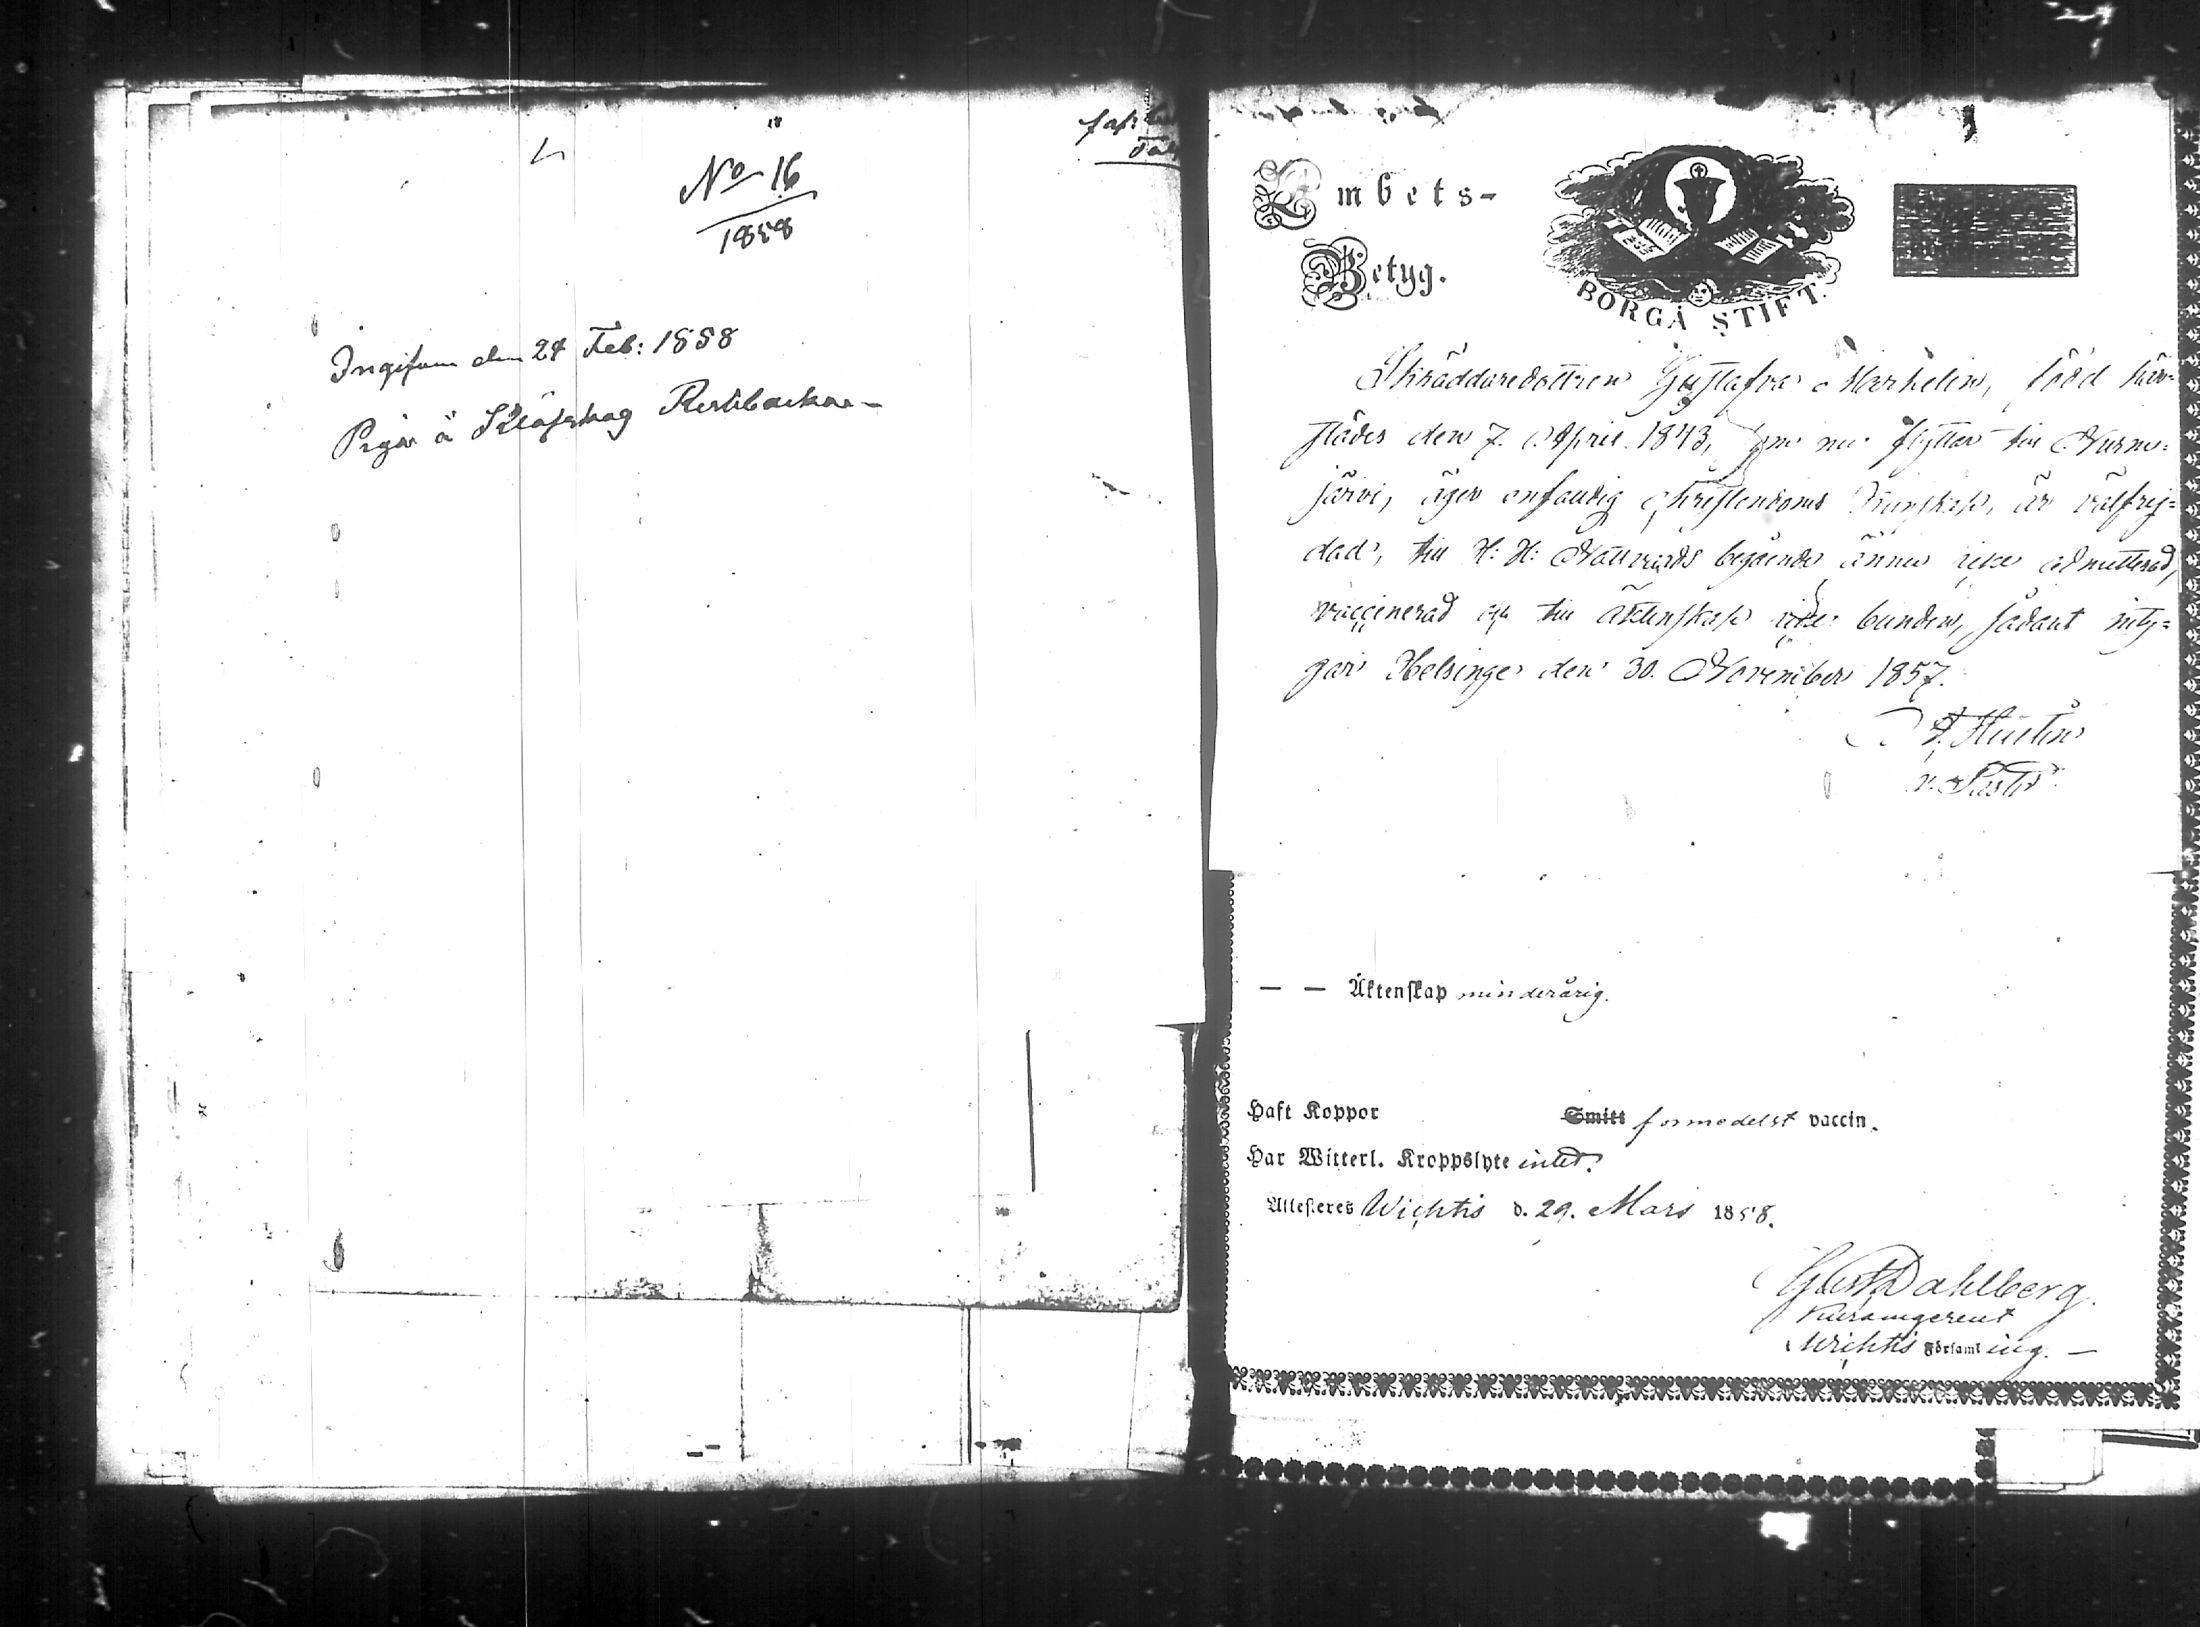 No 16
1858
Ingifven den 24 Feb: 1858
Pigan å
Embets-
Betyg.
BORGÅ STIFT.
Skräddaredottren Gustafva Markelin, född här-
städes den 7. April 1843, som nu flyttar till Nurmi-
järvi, äger enfaldig christendoms kunskap, är välfrej-
dad, till H: H: Nattvards begående ännu icke admitterad,
vaccinerad och till äktenskap icke bunden, sådant inty-
gar Helsinge den 30. November 1857.
v. Pastor
— — Äktenskap minderårig.
Haft Koppor Smitt förmedelst vaccin.
Har Witterl. Kroppslyte intet.
Attesteres Wichtis d. 29. Mars 1858.
Gust Dahlberg.
Wichtis Församling. —